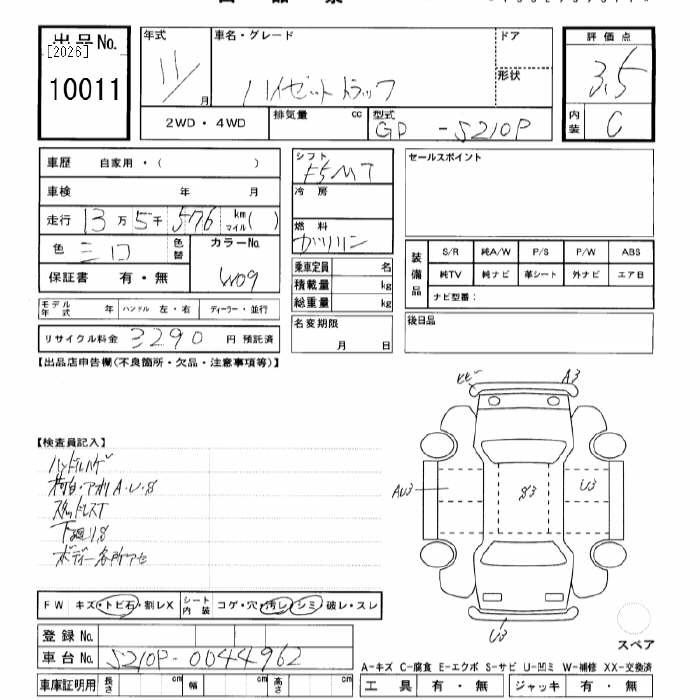 出品No.
[2026]
10011
年式 11/ 月
車名・グレード ハイゼットトラック
ドア
形状
2WD・4WD
排気量 cc
型式 GD-S210P
評価点 3.5
内装 C
車歴 自家用・( )
車検 年 月
走行 13万5千576 km マイル( )
色 シロ 色替
カラーNo. W09
保証書 有・無
モデル年式 年 ハンドル 左・右 ディーラー・並行
リサイクル料金 3290 円 預託済
シフト F5MT
冷房
燃料 ガソリン
乗車定員 名
積載量 kg
総重量 kg
名変期限 月 日
セールスポイント
装備品
S/R 純A/W P/S P/W ABS
純TV 純ナビ 革シート 外ナビ エアB
ナビ型番:
後日品
【出品店申告欄(不良箇所・欠品・注意事項等)】
【検査員記入】
ハンドルハゲ
荷台・アオリA・U・S
スタッドレスT
下廻りS
ボディー各所アセ
ヒビ A3
AU3 S3 U3
U3
スペア
FW キズ・トビ石・割レX シート内装 コゲ・穴・汚レ・シミ・破レ・スレ
登録No.
車台No. S210P-0044962
車庫証明用 長さ cm 幅 cm 高さ cm
A-キズ C-腐食 E-エクボ S-サビ U-凹ミ W-補修 XX-交換済
工具 有・無 ジャッキ 有・無